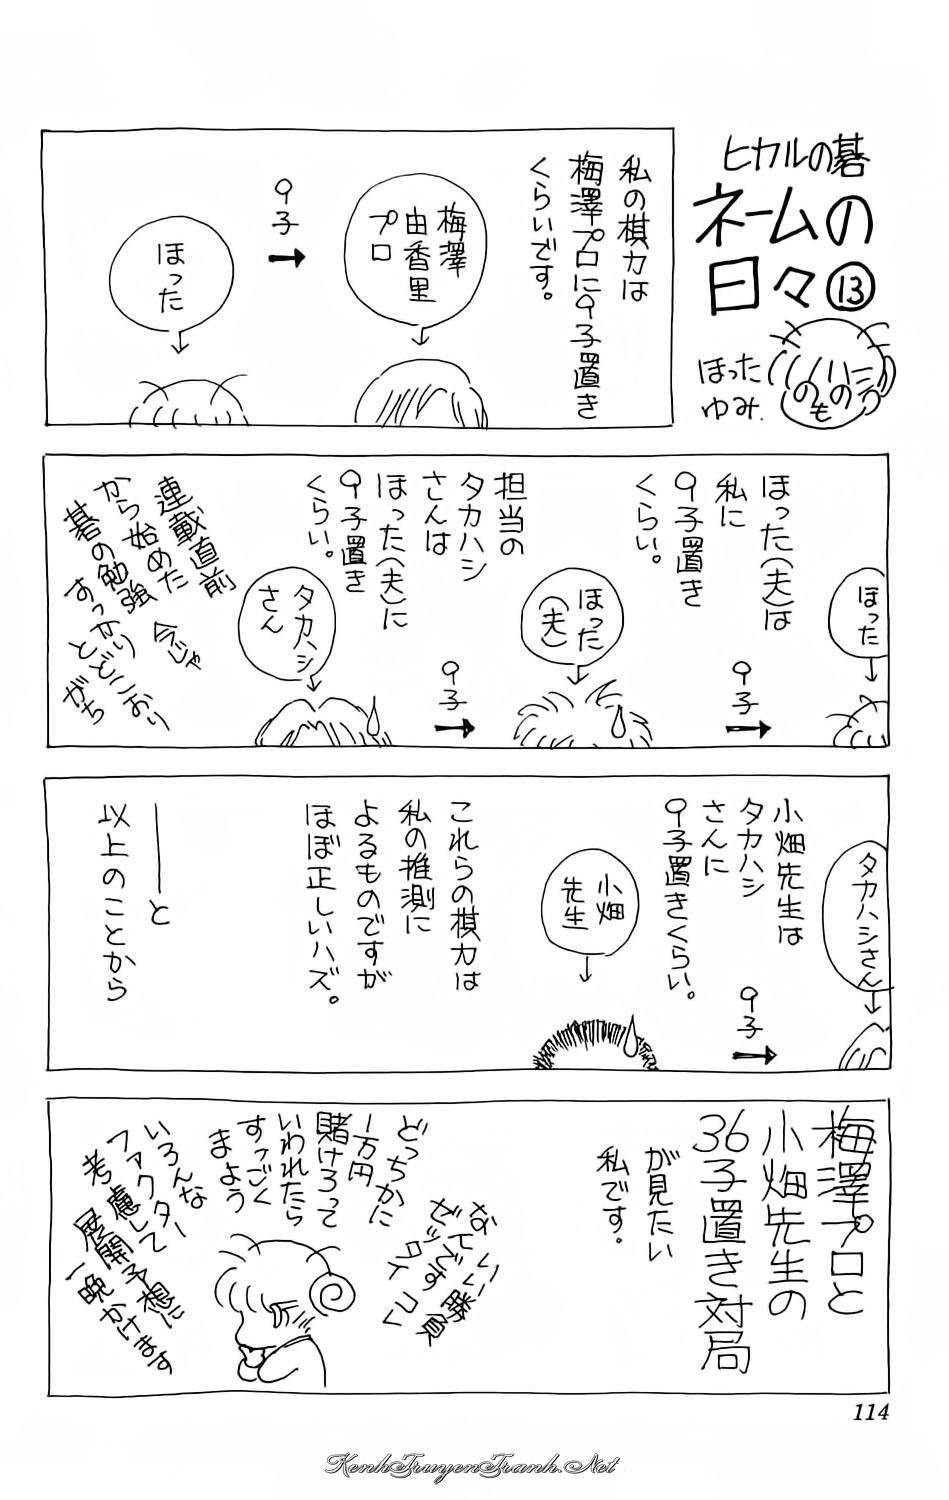 ヒカルの碁
ネームの
日々⑬
ほった
ゆみ.
へのへのもの
私の棋力は
梅澤プロに9子置き
くらいです。
梅澤
由香里
プロ
9子
ほった
ほった
ほった(夫)は
私に
9子置き
くらい。
9子
ほった
(夫)
担当の
タカハシ
さんは
ほった(夫)に
9子置き
くらい。
9子
タカハシ
さん
連載直前
から始めた
碁の勉強
今じゃ
すっかり
とどこおり
がち
タカハシさん
小畑先生は
タカハシ
さんに
9子置きくらい。
9子
小畑
先生
これらの棋力は
私の推測に
よるものですが
ほぼ正しいハズ。
――と
以上のことから
梅澤プロと
小畑先生の
36子置き対局
が見たい
私です。
いい勝負
なんです
ゼッタイコレ
どっちかに
1万円
賭けろって
いわれたら
すっごく
まよう
いろんな
ファクター
考慮して
展開予想に
一晩かけます
114
KenhTruyenTranh.Net